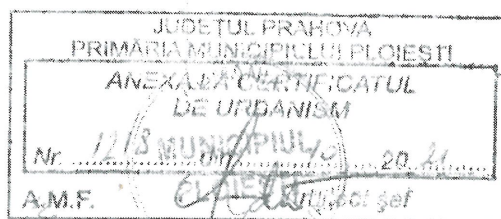 JUDEȚUL PRAHOVA
PRIMĂRIA MUNICIPIULUI PLOIEȘTI
ANEXĂ LA CERTIFICATUL
DE URBANISM
Nr. 1218 MUNICIPIUL 20 21
A.M.F. Arhitect șef